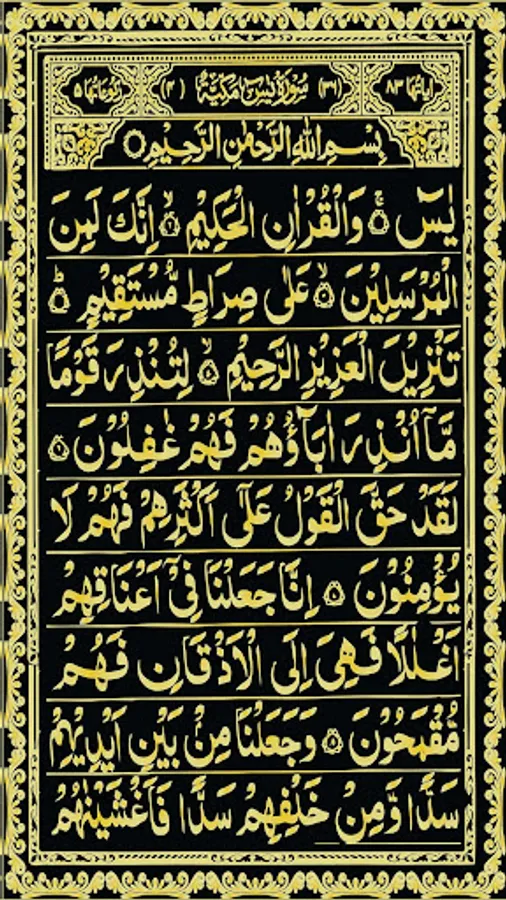 اٰيَاتُهَا ٨٣ (٣٦) سُوْرَةُ يٰسٓ مَكِّيَّةٌ (٤١) رُكُوْعَاتُهَا ٥
بِسْمِ اللهِ الرَّحْمٰنِ الرَّحِيْمِ
يٰسٓ ۝١ وَالْقُرْاٰنِ الْحَكِيْمِ ۝٢ اِنَّكَ لَمِنَ
الْمُرْسَلِيْنَ ۝٣ عَلٰى صِرَاطٍ مُّسْتَقِيْمٍ ۝٤
تَنْزِيْلَ الْعَزِيْزِ الرَّحِيْمِ ۝٥ لِتُنْذِرَ قَوْمًا
مَّاۤ اُنْذِرَ اٰبَآؤُهُمْ فَهُمْ غٰفِلُوْنَ ۝٦
لَقَدْ حَقَّ الْقَوْلُ عَلٰۤى اَكْثَرِهِمْ فَهُمْ لَا
يُؤْمِنُوْنَ ۝٧ اِنَّا جَعَلْنَا فِيْۤ اَعْنَاقِهِمْ
اَغْلٰلًا فَهِيَ اِلَى الْاَذْقَانِ فَهُمْ
مُّقْمَحُوْنَ ۝٨ وَجَعَلْنَا مِنْۢ بَيْنِ اَيْدِيْهِمْ
سَدًّا وَّمِنْ خَلْفِهِمْ سَدًّا فَاَغْشَيْنٰهُمْ